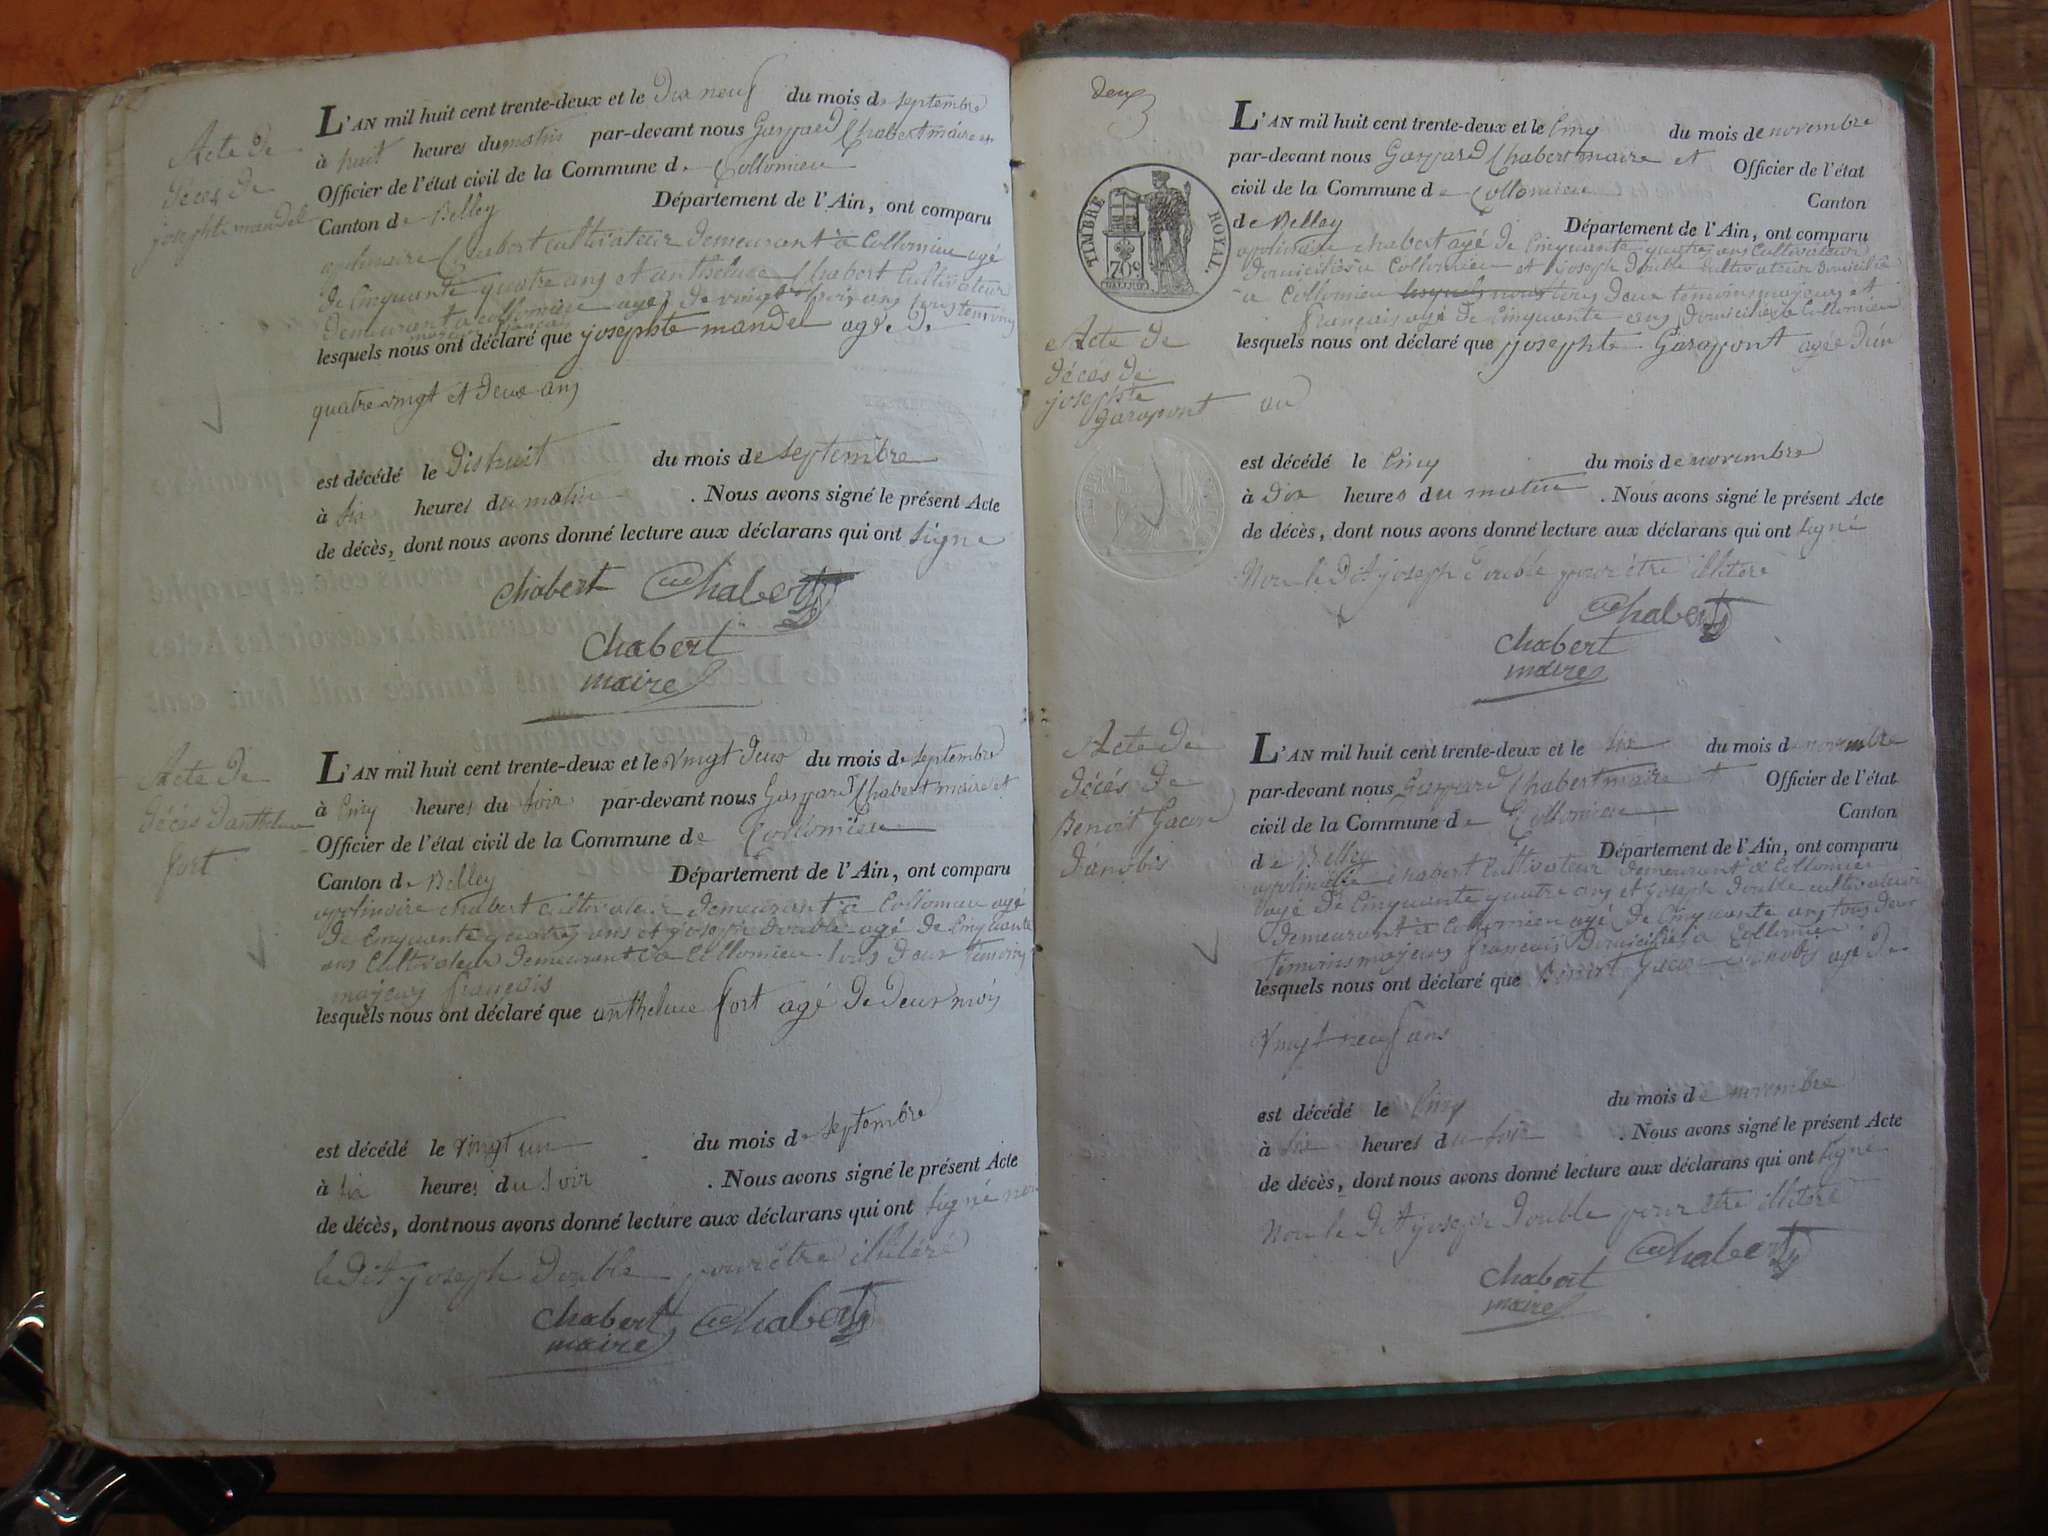 Acte de
décès de
josephte mandel
L'AN mil huit cent trente-deux et le dix neuf du mois de septembre
à huit heures du matin par-devant nous Gaspard Chabert maire et
Officier de l'état civil de la Commune de Collomieu
Canton de Belley Département de l'Ain, ont comparu
apolinaire Chabert cultivateur demeurant à Collomieu agé
de cinquante quatre ans et anthelme Chabert cultivateur
demeurant a collomieu agé de vingt trois ans tous temoins
majeurs français
lesquels nous ont déclaré que josephte mandel agée de
quatre vingt et deux ans
est décédé le dishuit du mois de septembre
à six heures du matin . Nous avons signé le présent Acte
de décès, dont nous avons donné lecture aux déclarans qui ont signe
chabert Chabert
chabert
maire
Acte de
décès d'anthelme
fort
L'AN mil huit cent trente-deux et le vingt deux du mois de septembre
à cinq heures du soir par-devant nous Gaspard Chabert maire et
Officier de l'état civil de la Commune de Collomieu
Canton de Belley Département de l'Ain, ont comparu
apolinaire chabert cultivateur demeurant à Collomieu agé
de cinquante quatre ans et joseph double agé de cinquante
ans cultivateur demeurant à Collomieu tous deux temoins
majeurs français
lesquels nous ont déclaré que anthelme fort agé de deux mois
est décédé le vingt un du mois de septembre
à six heures du soir . Nous avons signé le présent Acte
de décès, dont nous avons donné lecture aux déclarans qui ont signé non
le dit joseph double pour être illitéré
chabert Chabert
maire
deux
TIMBRE ROYAL.
70c
Acte de
décès de
josephte
Garapont
L'AN mil huit cent trente-deux et le cinq du mois de novembre
par-devant nous Gaspard Chabert maire et Officier de l'état
civil de la Commune de Collomieu Canton
de Belley Département de l'Ain, ont comparu
apolinaire chabert agé de cinquante quatre ans cultivateur
domicilié à Collomieu et joseph double cultivateur domicilié
a Collomieu tous deux temoins majeurs et
français agé de cinquante ans domiciliés à Collomieu
lesquels nous ont déclaré que josephte Garapont agée d'un
an
est décédé le cinq du mois de novembre
à dix heures du matin . Nous avons signé le présent Acte
de décès, dont nous avons donné lecture aux déclarans qui ont signé
Non le dit joseph double pour être illiteré
Chabert
chabert
maire
Acte de
décès de
Benoit Gacon
danobis
L'AN mil huit cent trente-deux et le six du mois de novembre
par-devant nous Gaspard Chabert maire et Officier de l'état
civil de la Commune de Collomieu Canton
de Belley Département de l'Ain, ont comparu
apolinaire chabert cultivateur demeurant à Collomieu
agé de cinquante quatre ans et joseph double cultivateur
demeurant à Collomieu agé de cinquante ans tous deux
temoins majeurs français domiciliés a Collomieu
lesquels nous ont déclaré que Benoit Gacon danobis agé de
vingt neuf ans
est décédé le cinq du mois de novembre
à six heures du soir . Nous avons signé le présent Acte
de décès, dont nous avons donné lecture aux déclarans qui ont signé
Non le dit joseph double pour etre illiteré
Chabert
chabert
maire